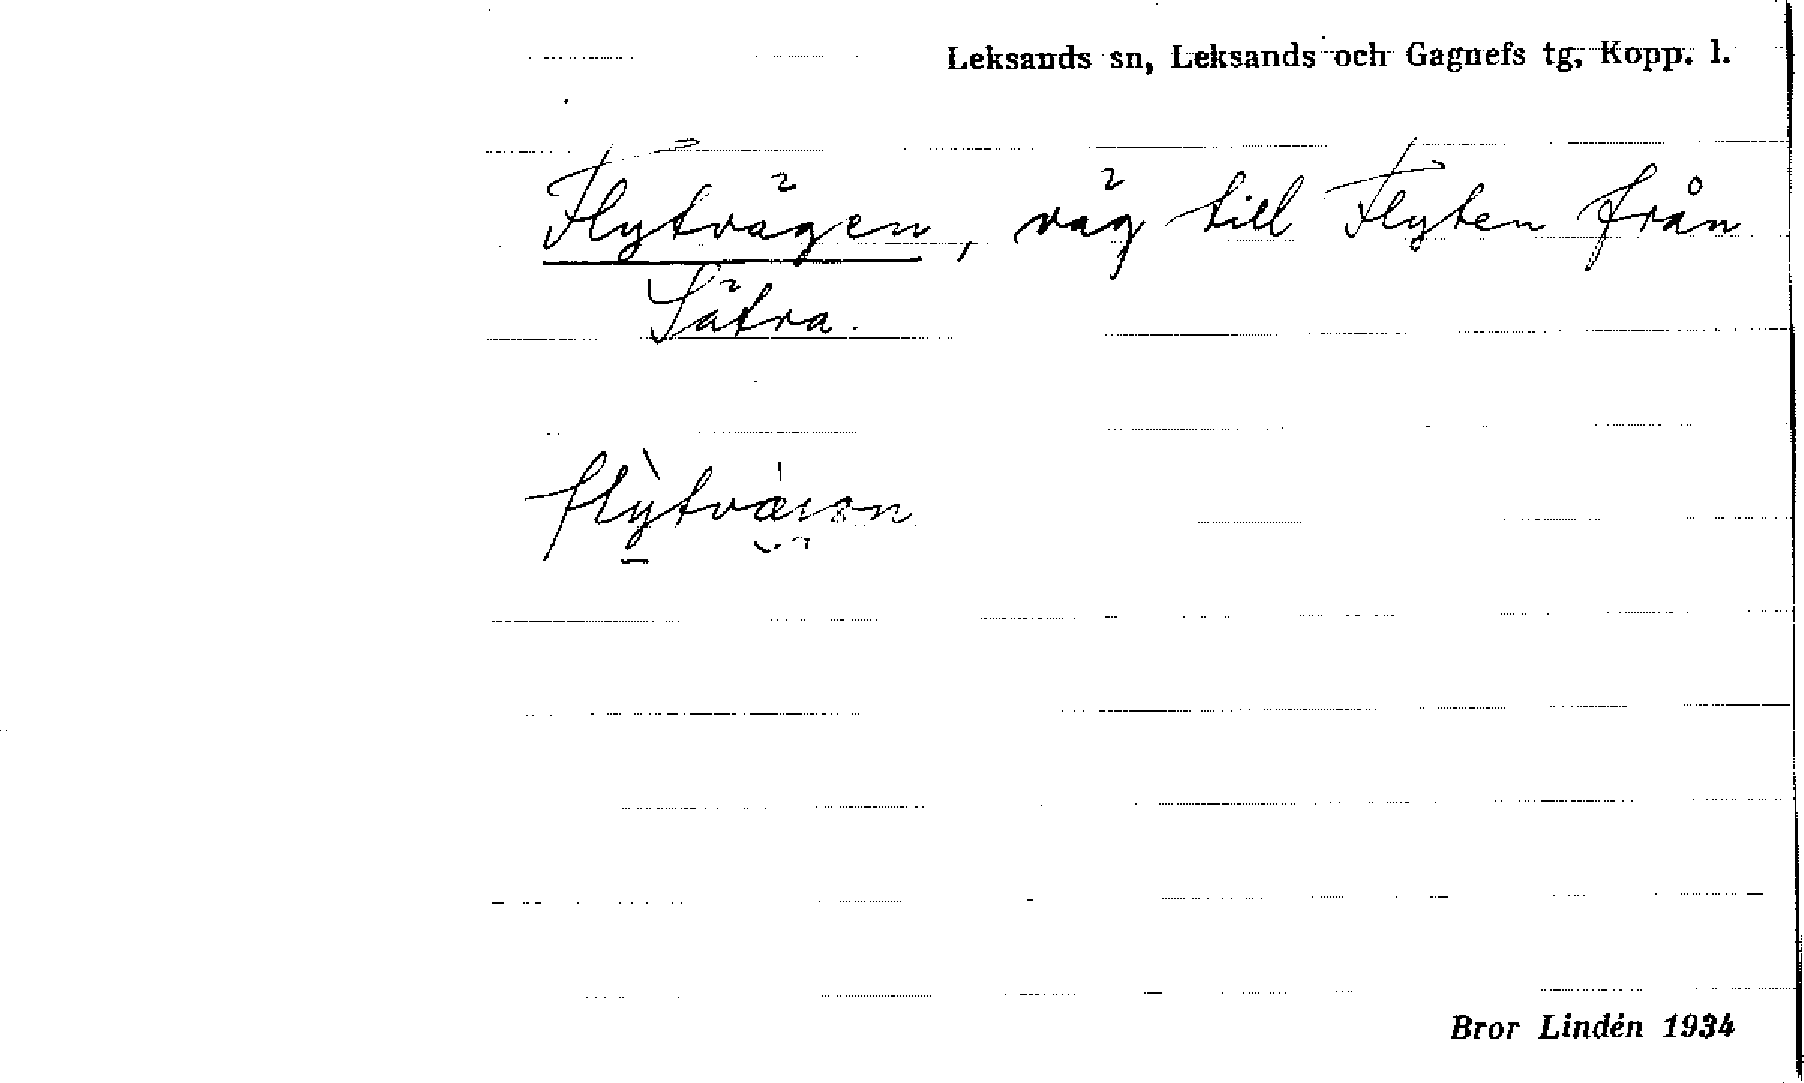 Leksands sn, Leksands och Gagnefs tg, Kopp. l.
Flytvägen, väg till Flyten från
Sätra.
Bror Lindén 1934